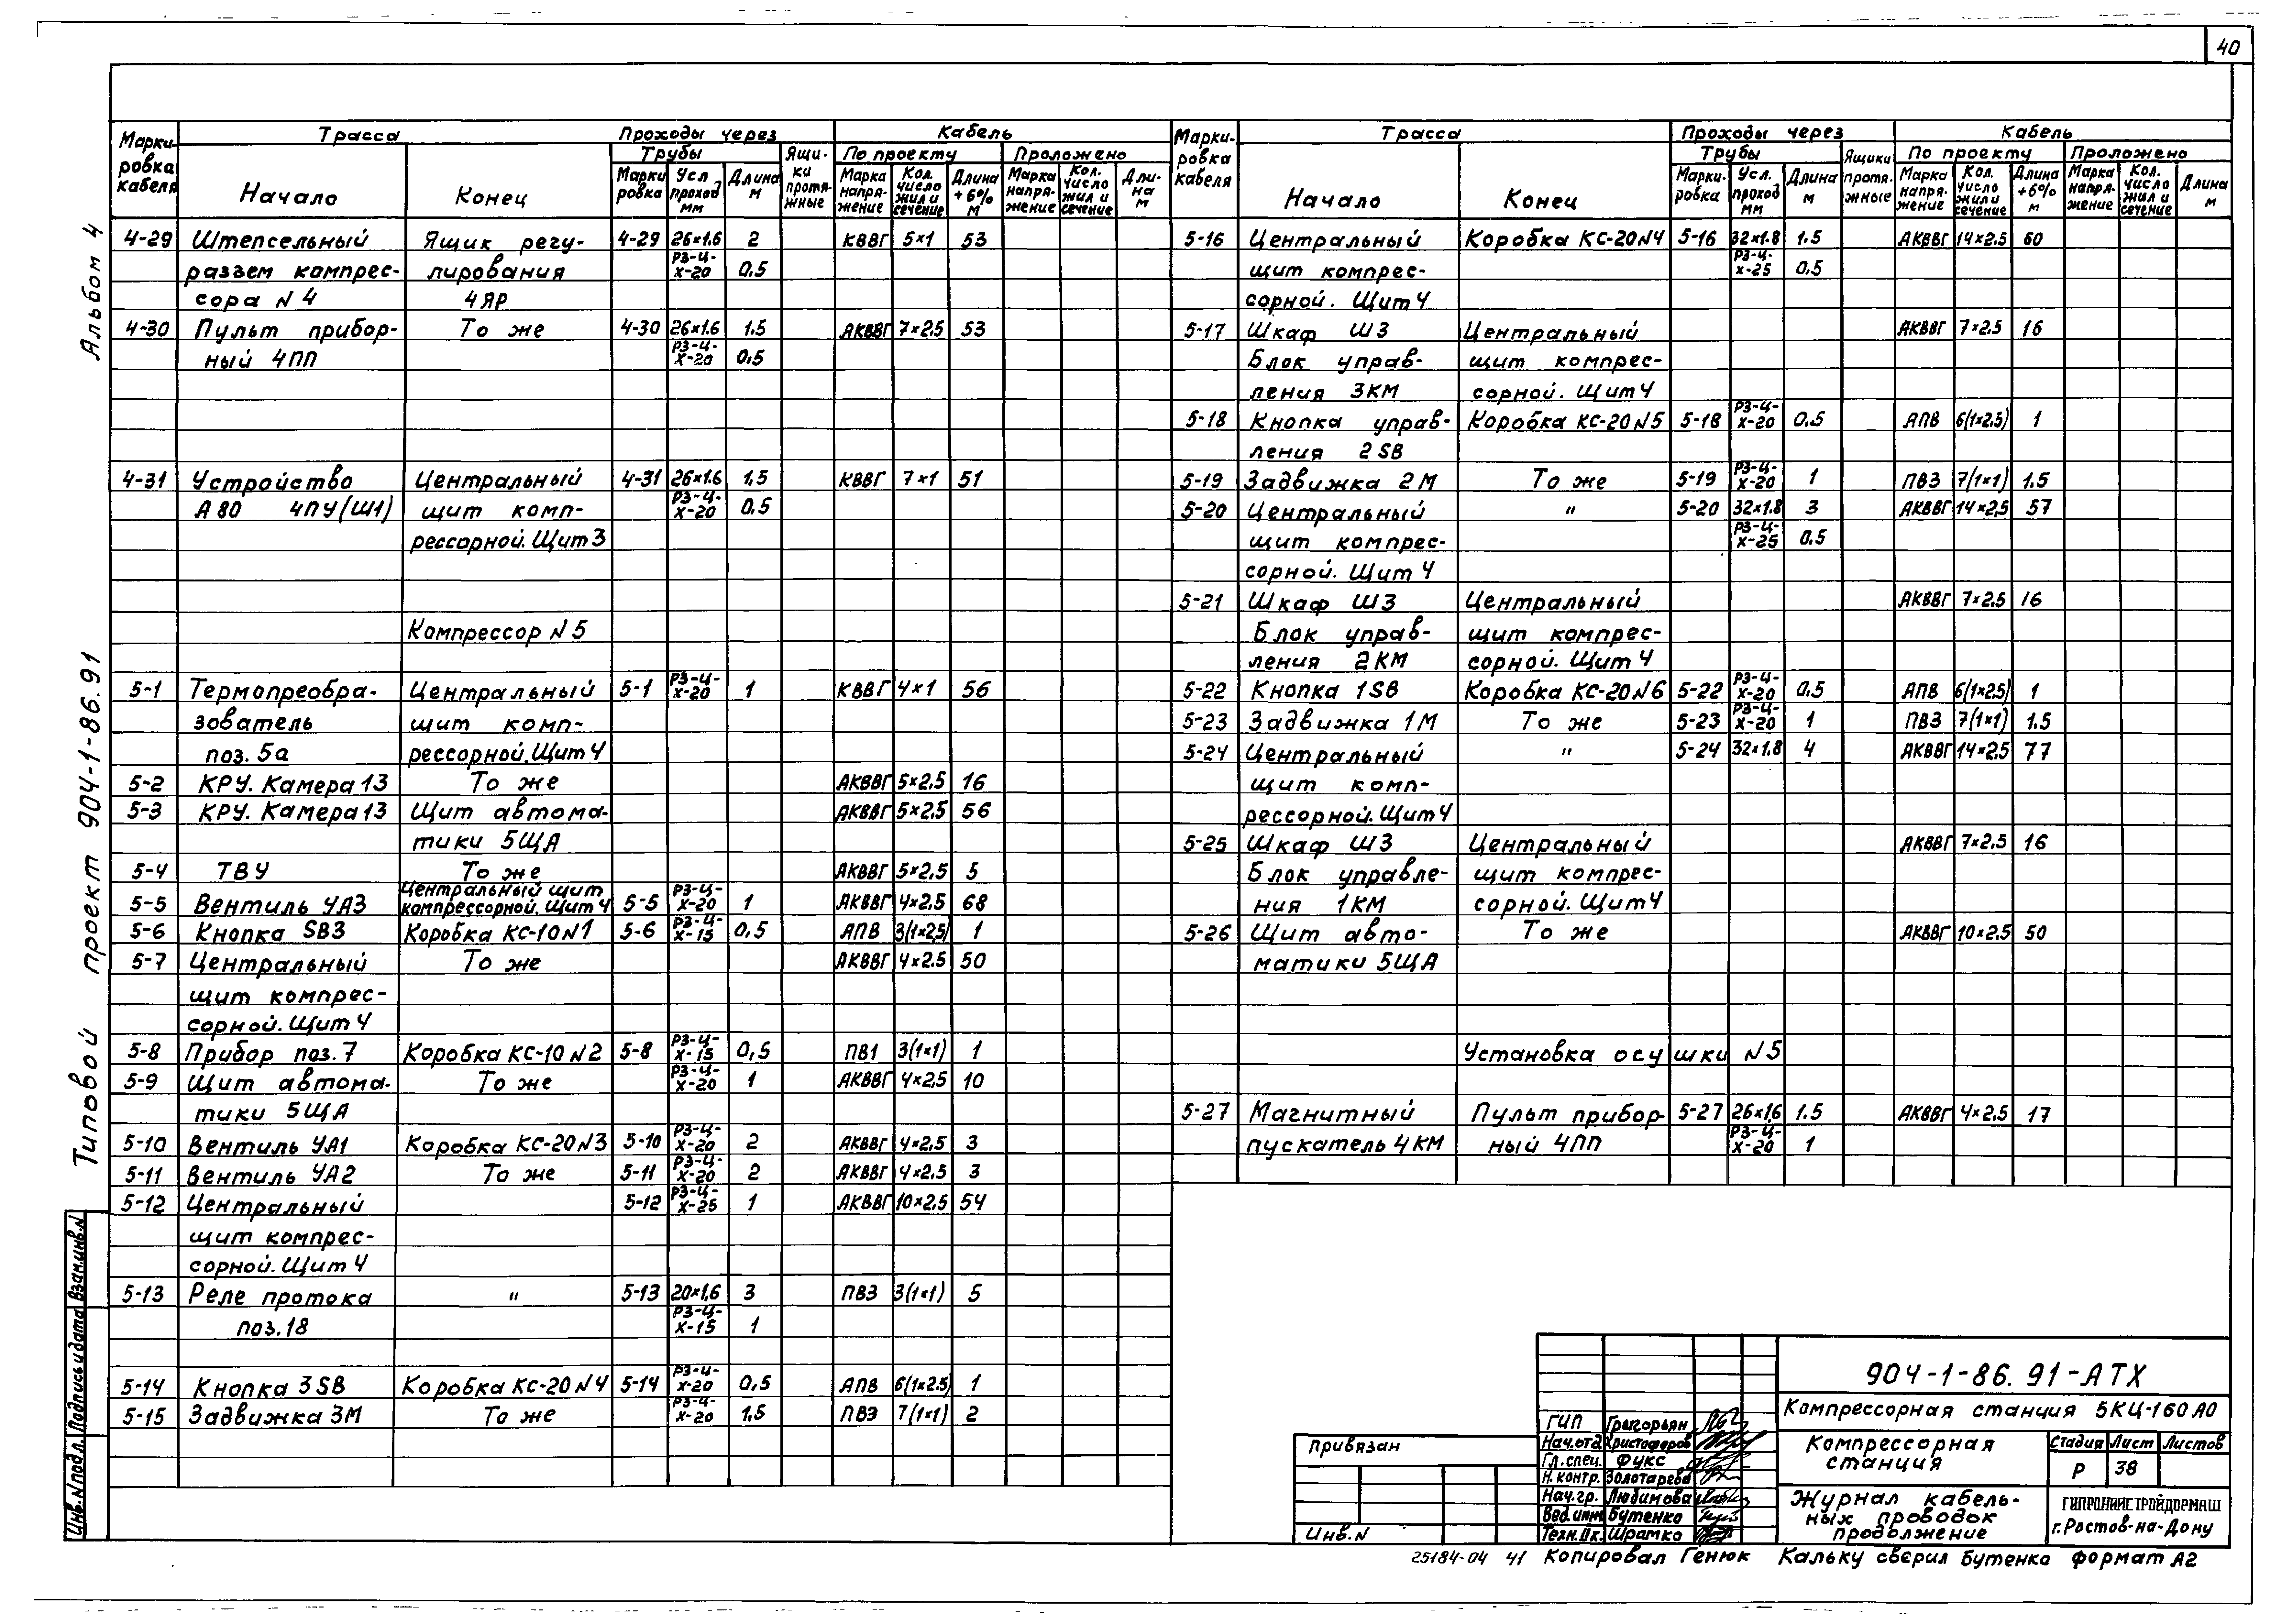 40
Альбом 4
Типовой проект 904-1-86.91
Взам.инв.N
Подпись и дата
Инв.N подл.
Марки-ровка кабеля | Трасса | Проходы через | Кабель
Начало | Конец | Трубы | Ящи-ки протя-жные | По проекту | Проложено
Марки ровка | Усл проход мм | Длина м | Марка напря-жение | Кол. число жил и сечение | Длина +6% м | Марка напря-жение | Кол. число жил и сечение | Дли-на м
4-29 Штепсельный Ящик регу- 4-29 26×1.6 2 КВВГ 5×1 53
разъем компрес- лирования РЗ-Ц-Х-20 0,5
сора N 4 4ЯР
4-30 Пульт прибор- То же 4-30 26×1.6 1.5 АКВВГ 7×2.5 53
ный 4ПП РЗ-Ц-Х-20 0,5
4-31 Устройство Центральный 4-31 26×1.6 1,5 КВВГ 7×1 51
А80 4ПУ(Ш1) щит комп- РЗ-Ц-Х-20 0,5
рессорной. Щит 3
Компрессор N 5
5-1 Термопреобра- Центральный 5-1 РЗ-Ц-Х-20 1 КВВГ 4×1 56
зователь щит комп-
поз. 5а рессорной. Щит 4
5-2 КРУ. Камера 13 То же АКВВГ 5×2.5 16
5-3 КРУ. Камера 13 Щит автома- АКВВГ 5×2,5 56
тики 5ЩА
5-4 ТВУ То же АКВВГ 5×2,5 5
5-5 Вентиль УА3 Центральный щит компрессорной. Щит 4 5-5 РЗ-Ц-Х-20 1 АКВВГ 4×2.5 68
5-6 Кнопка SB3 Коробка КС-10 N1 5-6 РЗ-Ц-Х-15 0,5 АПВ 3(1×2,5) 1
5-7 Центральный То же АКВВГ 4×2.5 50
щит компрес-
сорной. Щит 4
5-8 Прибор поз. 7 Коробка КС-10 N2 5-8 РЗ-Ц-Х-15 0,5 ПВ1 3(1×1) 1
5-9 Щит автома- То же РЗ-Ц-Х-20 1 АКВВГ 4×2,5 10
тики 5ЩА
5-10 Вентиль УА1 Коробка КС-20 N3 5-10 РЗ-Ц-Х-20 2 АКВВГ 4×2,5 3
5-11 Вентиль УА2 То же 5-11 РЗ-Ц-Х-20 2 АКВВГ 4×2.5 3
5-12 Центральный 5-12 РЗ-Ц-Х-25 1 АКВВГ 10×2.5 54
щит компрес-
сорной. Щит 4
5-13 Реле протока " 5-13 20×1,6 3 ПВ3 3(1×1) 5
поз. 18 РЗ-Ц-Х-15 1
5-14 Кнопка 3SB Коробка КС-20 N4 5-14 РЗ-Ц-Х-20 0,5 АПВ 6(1×2.5) 1
5-15 Задвижка 3М То же РЗ-Ц-Х-20 1,5 ПВ3 7(1×1) 2
Марки-ровка кабеля | Трасса | Проходы через | Кабель
Начало | Конец | Трубы | Ящики протя-жные | По проекту | Проложено
Марки-ровка | Усл. проход мм | Длина м | Марка напря-жение | Кол. число жил и сечение | Длина +6% м | Марка напря-жение | Кол. число жил и сечение | Длина м
5-16 Центральный Коробка КС-20 N4 5-16 32×1.8 1.5 АКВВГ 14×2.5 60
щит компрес- РЗ-Ц-Х-25 0,5
сорной. Щит 4
5-17 Шкаф Ш3 Центральный АКВВГ 7×2.5 16
Блок управ- щит компрес-
ления 3КМ сорной. Щит 4
5-18 Кнопка управ- Коробка КС-20 N5 5-18 РЗ-Ц-Х-20 0,5 АПВ 6(1×2,5) 1
ления 2SB
5-19 Задвижка 2М То же 5-19 РЗ-Ц-Х-20 1 ПВ3 7(1×1) 1.5
5-20 Центральный " 5-20 32×1.8 3 АКВВГ 14×2,5 57
щит компрес- РЗ-Ц-Х-25 0,5
сорной. Щит 4
5-21 Шкаф Ш3 Центральный АКВВГ 7×2,5 16
Блок управ- щит компрес-
ления 2КМ сорной. Щит 4
5-22 Кнопка 1SB Коробка КС-20 N6 5-22 РЗ-Ц-Х-20 0,5 АПВ 6(1×2,5) 1
5-23 Задвижка 1М То же 5-23 РЗ-Ц-Х-20 1 ПВ3 7(1×1) 1.5
5-24 Центральный " 5-24 32×1.8 4 АКВВГ 14×2,5 77
щит комп-
рессорной. Щит 4
5-25 Шкаф Ш3 Центральный АКВВГ 7×2.5 16
Блок управле- щит компрес-
ния 1КМ сорной. Щит 4
5-26 Щит авто- То же АКВВГ 10×2,5 50
матики 5ЩА
Установка осушки N5
5-27 Магнитный Пульт прибор- 5-27 26×1,6 1.5 АКВВГ 4×2.5 17
пускатель 4КМ ный 4ПП РЗ-Ц-Х-20 1
Привязан
Инв.N
ГИП Григорьян
Нач.отд Христофоров
Гл.спец. Фукс
Н.контр. Золотарева
Нач.гр. Людимова
Вед.инж Бутенко
Техн.IIк. Шрамко
904-1-86.91-АТХ
Компрессорная станция 5КЦ-160А0
Компрессорная станция
Стадия Лист Листов
Р 38
Журнал кабель-
ных проводок
продолжение
ГИПРОНИИСТРОЙДОРМАШ
г.Ростов-на-Дону
25184-04 41 Копировал Генюк Кальку сверил Бутенко формат А2